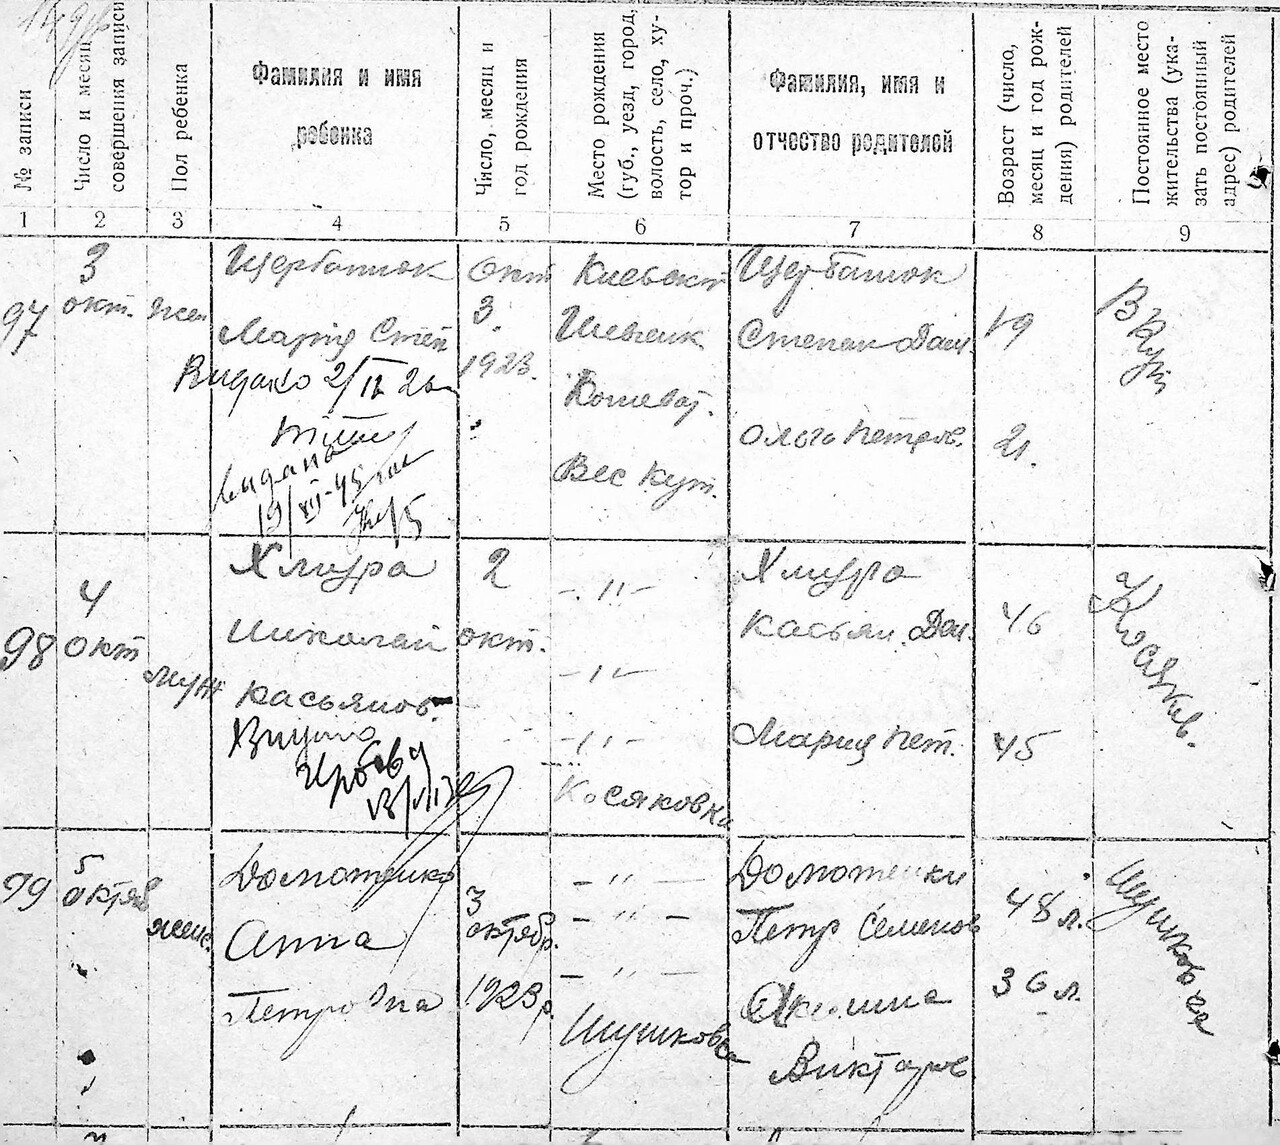 № записи
Число и месяц
совершения записи
Пол ребенка
Фамилия и имя
ребенка
Число, месяц и
год рождения
Место рождения
(губ., уезд, город,
волость, село, ху-
тор и проч.)
Фамилия, имя и
отчество родителей
Возраст (число,
месяц и год рож-
дения) родителей
Постоянное место
жительства (ука-
зать постоянный
адрес) родителей
1 2 3 4 5 6 7 8 9
97
3
окт.
жен
Щербатюк
Мария Степ
Видано
окт
3.
1923.
Киевск
Шевченк
Кошеват.
Вес Кут.
Щербатюк
Степан Дан.
Ольга Петров.
19
21.
В Кут
98
4
окт
муж
Хмура
Николай
Касьянов.
2
окт.
- " -
- " -
- " -
Косяковка
Хмура
Касьян. Дан.
Мария Пет.
46
45
Косяков.
99
5
октяб
женс.
Домотенко
Анна
Петровна
3
октябр.
1923 г.
- " -
- " -
- " -
Шушковка
Домотенки
Петр Семенов
Акелина
Викторов
48 л.
36 л.
Шушковка